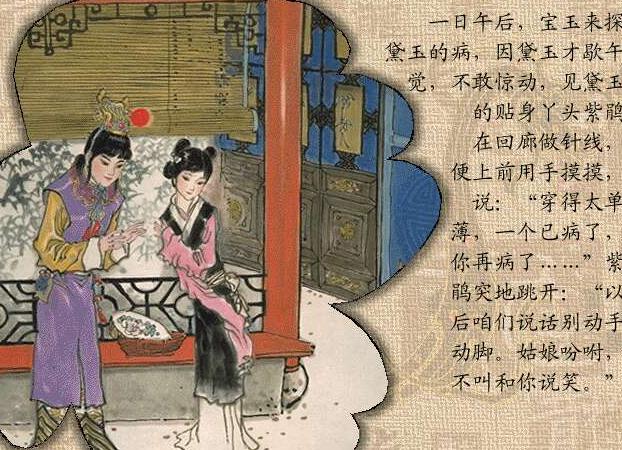 一日午后，宝玉来探
黛玉的病，因黛玉才歇午
觉，不敢惊动，见黛玉
的贴身丫头紫鹃
在回廊做针线，
便上前用手摸摸，
说：“穿得太单
薄，一个已病了，
你再病了……”紫
鹃突地跳开：“以
后咱们说话别动手
动脚。姑娘吩咐，
不叫和你说笑。”